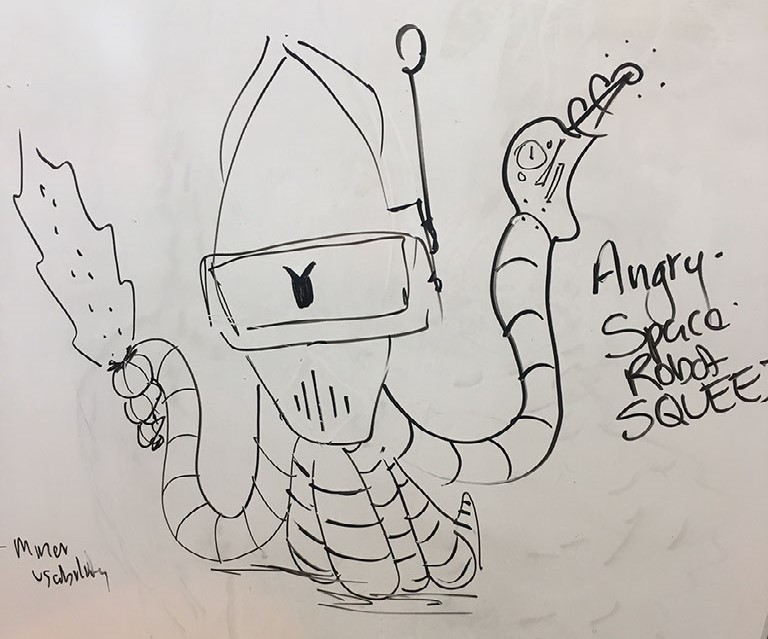 Angry.
Space.
Robot
SQUEE
Miner
usability